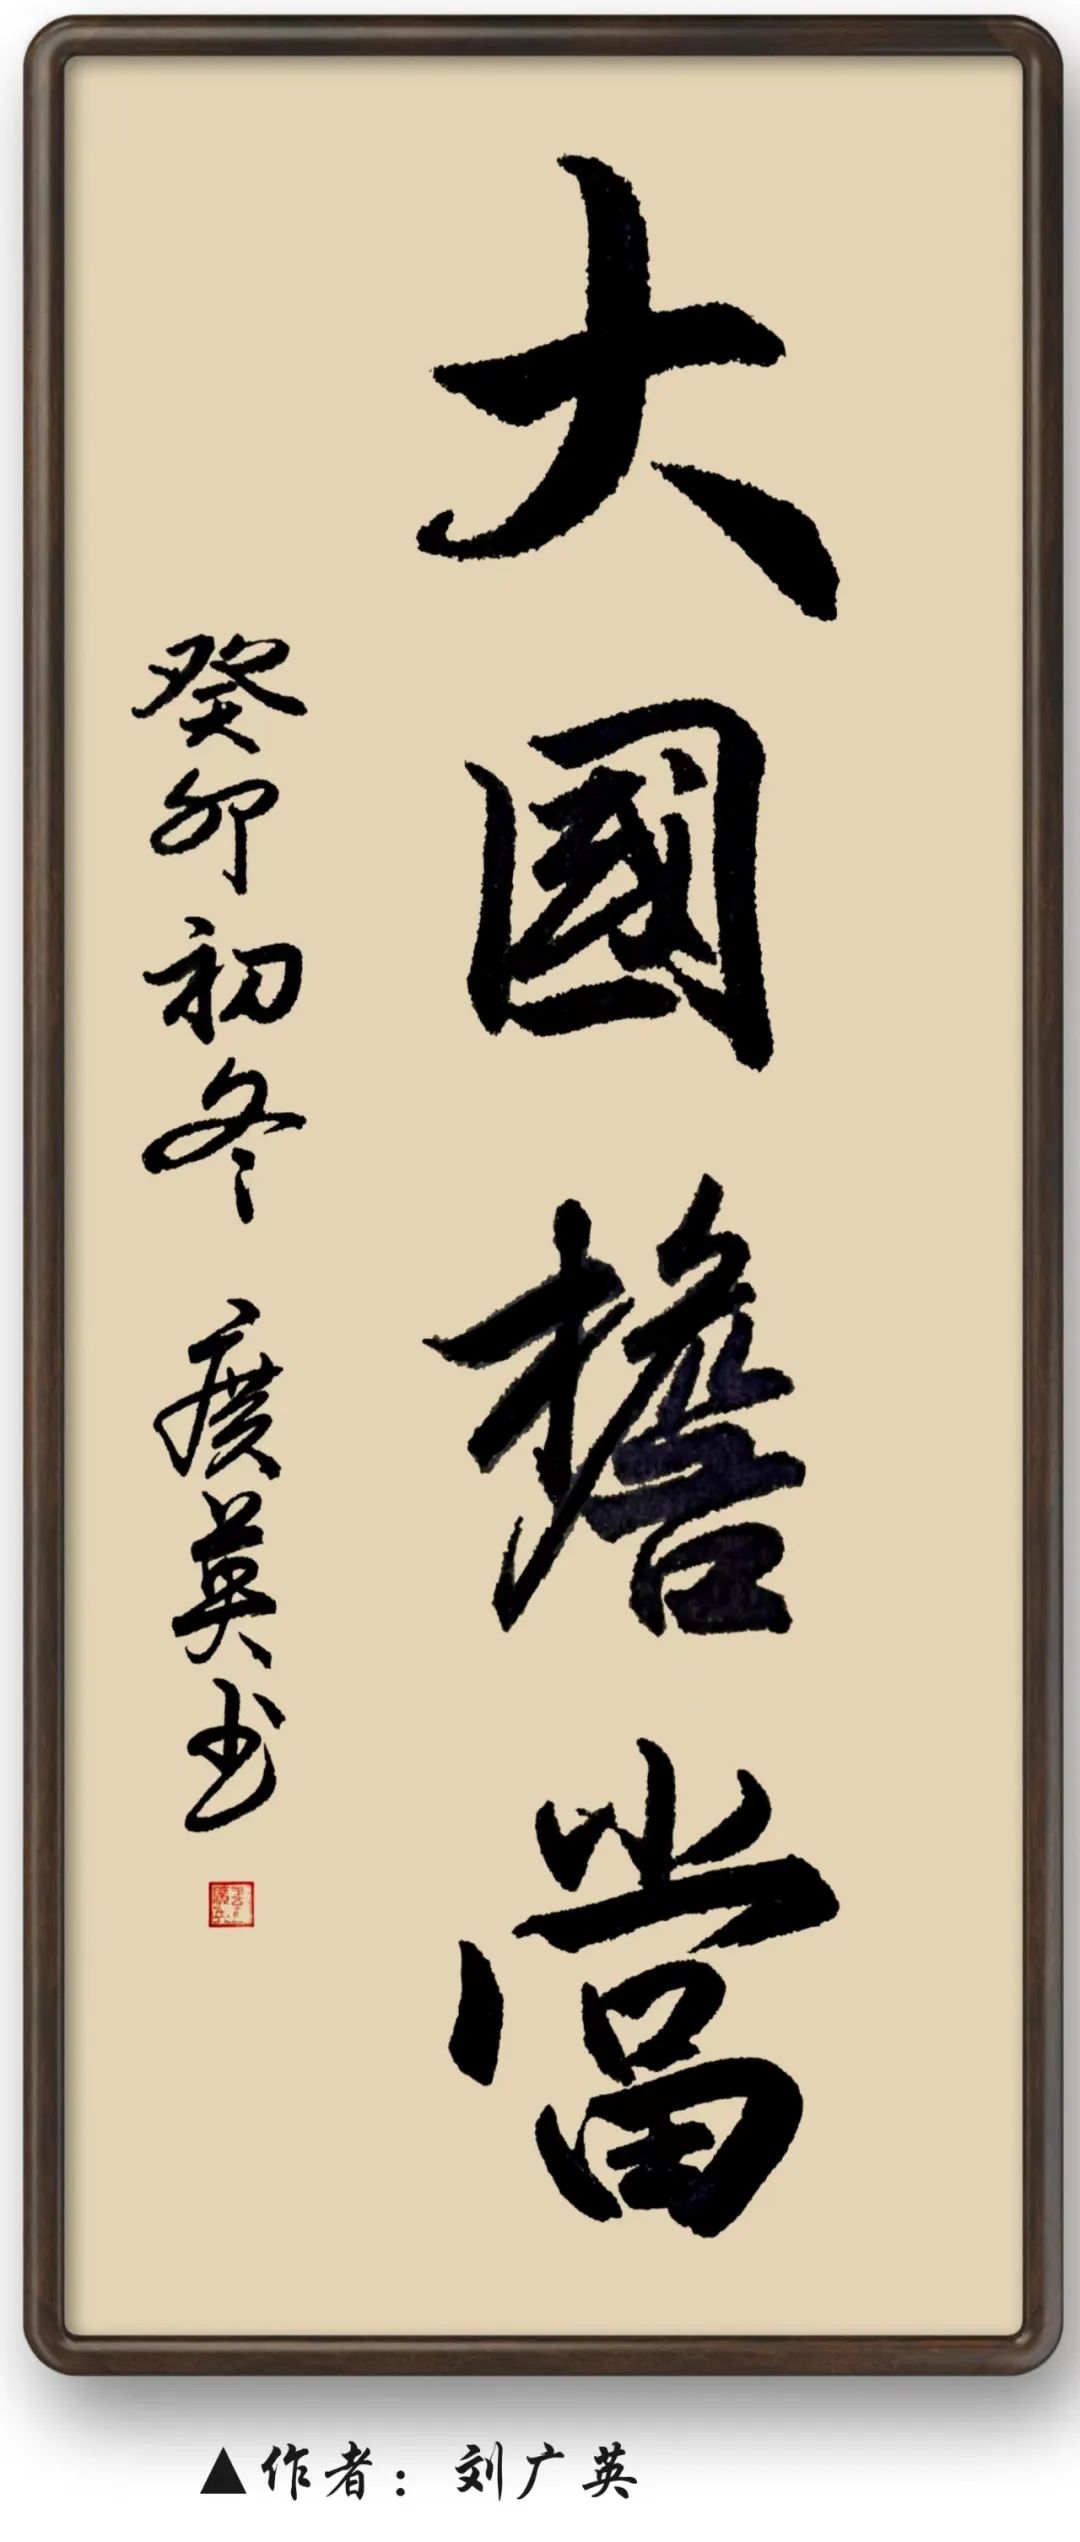 大國擔當
癸卯初冬 廣英书
▲作者：刘广英